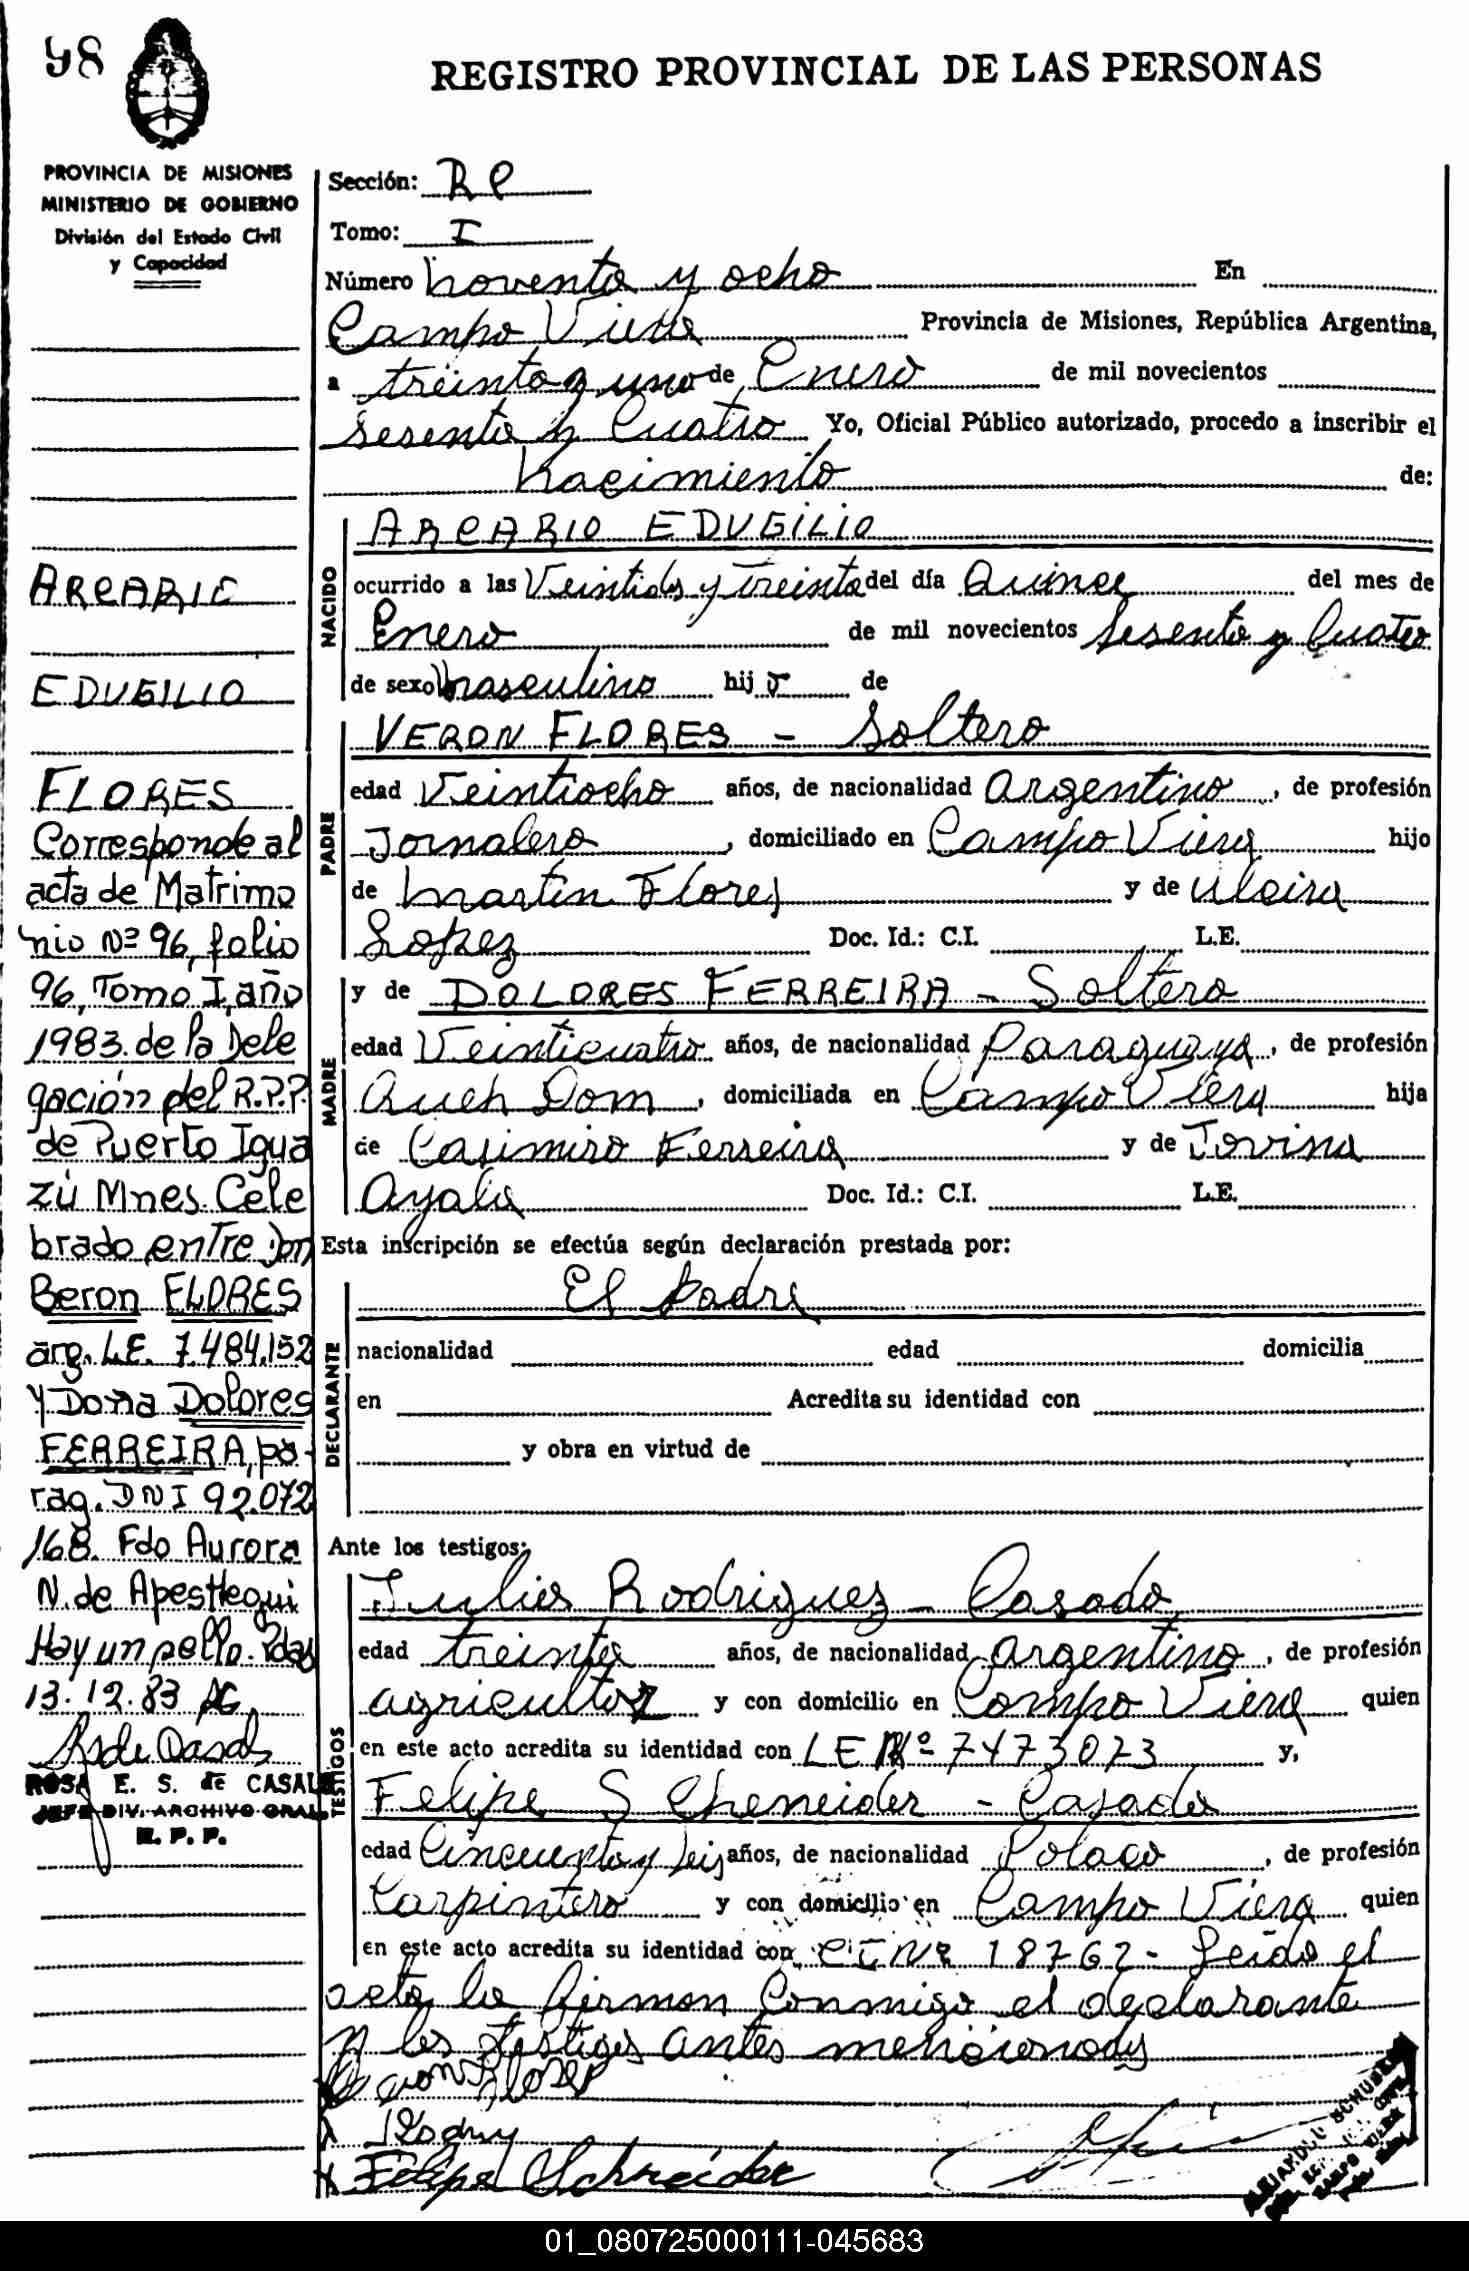 98
REGISTRO PROVINCIAL DE LAS PERSONAS
PROVINCIA DE MISIONES
MINISTERIO DE GOBIERNO
División del Estado Civil
y Capacidad
ARCARIO
EDUGILIO
FLORES
Corresponde al
acta de Matrimo
nio Nº 96, folio
96, Tomo I, año
1983. de la Dele
gación del R.P.P.
de Puerto Igua
zú Mnes. Cele
brado entre Don
Beron FLORES
arg. L.E. 7.484.152
y Doña Dolores
FERREIRA, pa-
rag. DNI 92.072
168. Fdo Aurora
N. de Apesttegui
Hay un sello. Pdas
13.12.83
ROSA E. S. de CASALE
JEFE DIV. ARCHIVO GRAL
R. P. P.
Sección: RC
Tomo: I
Número noventa y ocho En
Campo Viera Provincia de Misiones, República Argentina,
a treinta y uno de Enero de mil novecientos
sesenta y Cuatro Yo, Oficial Público autorizado, procedo a inscribir el
Nacimiento de:
NACIDO
ARCARIO EDUGILIO
ocurrido a las Veintidos y Treinta del día Quince del mes de
Enero de mil novecientos sesenta y Cuatro
de sexo masculino hijo de
PADRE
VERON FLORES - Soltero
edad Veintiocho años, de nacionalidad Argentino, de profesión
Jornalero, domiciliado en Campo Viera hijo
de Martin Flores y de Ulcira
Lopez Doc. Id.: C.I. L.E.
MADRE
y de DOLORES FERREIRA - Soltera
edad Veinticuatro años, de nacionalidad Paraguaya, de profesión
Queh Dom, domiciliada en Campo Viera hija
de Casimiro Ferreira y de Jovina
Ayala Doc. Id.: C.I. L.E.
Esta inscripción se efectúa según declaración prestada por:
DECLARANTE
El padre
nacionalidad edad domicilia
en Acredita su identidad con
y obra en virtud de
Ante los testigos:
TESTIGOS
Julio Rodriguez - Casado
edad treinta años, de nacionalidad Argentino, de profesión
agricultor y con domicilio en Campo Viera quien
en este acto acredita su identidad con LE Nº 7473073 y,
Felipe S Cheneider - Casado
edad Cincuenta y seis años, de nacionalidad Polaco, de profesión
Carpintero y con domicilio en Campo Viera quien
en este acto acredita su identidad con CI Nº 18762 - Leida el
acta la firman Conmigo el declarante
y los testigos antes mencionados
Felipe Schneider
SCHUBERT
CAMPO VIERA
01_080725000111-045683